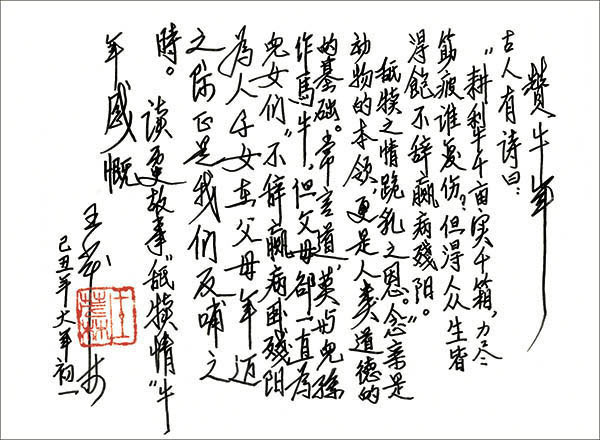 赞牛年
古人有诗曰：
“耕犁千亩实千箱，力尽
筋疲谁复伤？但得众生皆
得饱不辞羸病残阳”。
舐犊之情跪乳之恩。念亲是
动物的本领，更是人类道德的
的基础。常言道，莫与儿孫
作馬牛，但父母都一直为
儿女们“不辞羸病卧残阳
為人子女在父母年迈
之际正是我们反哺之
時。读历史故事“舐犊情”牛
年感慨
王茂林
己丑年大年初一